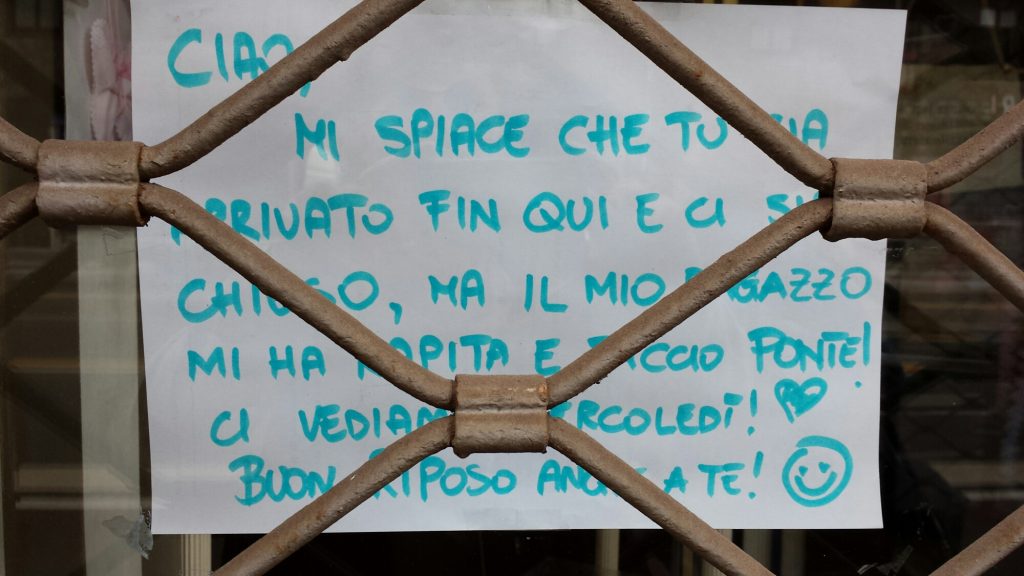 CIAO,
MI SPIACE CHE TU SIA
ARRIVATO FIN QUI E CI SIA
CHIUSO, MA IL MIO RAGAZZO
MI HA RAPITA E FACCIO PONTE!
CI VEDIAMO MERCOLEDÌ!
BUON RIPOSO ANCHE A TE!